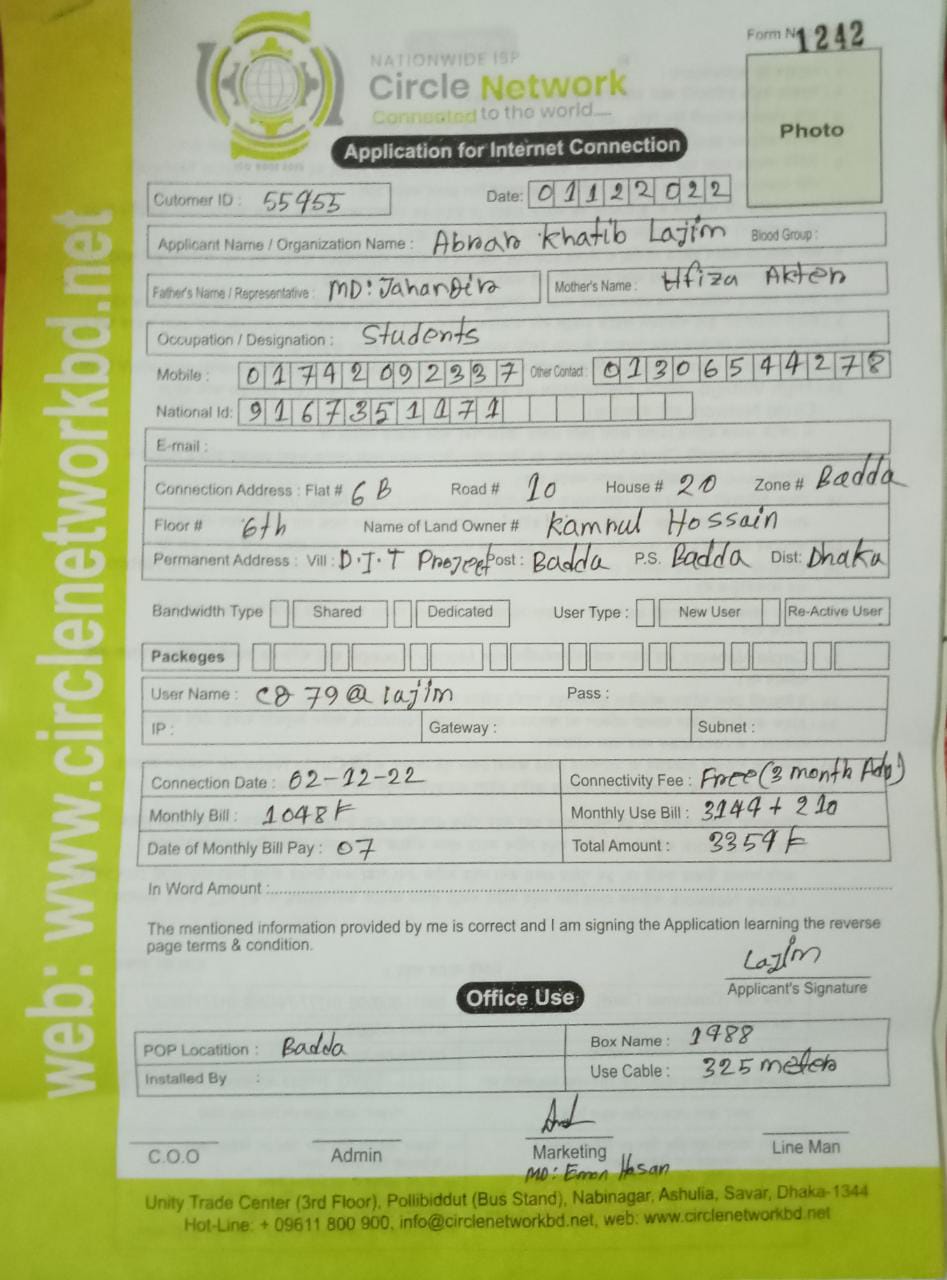 Form No 1242
NATIONWIDE ISP
Circle Network
Connected to the world.....
ISO 9001:2015
Photo
Application for Internet Connection
Cutomer ID : 55955 Date: 01122022
Applicant Name / Organization Name : Abrar Khatib Lajim Blood Group :
Father's Name / Representative : MD: Jahangir Mother's Name : Hfiza Akter
Occupation / Designation : Students
Mobile : 01742092337 Other Contact : 01306544278
National Id: 9167351171
E-mail :
Connection Address : Flat # 6B Road # 10 House # 20 Zone # Badda
Floor # 6th Name of Land Owner # Kamrul Hossain
Permanent Address : Vill : D.I.T Project Post : Badda P.S. Badda Dist: Dhaka
Bandwidth Type Shared Dedicated User Type : New User Re-Active User
Packeges
User Name : C879@lajim Pass :
IP : Gateway : Subnet :
Connection Date : 02-12-22 Connectivity Fee : Free (3 month Adv)
Monthly Bill : 1048 ৳ Monthly Use Bill : 3144 + 210
Date of Monthly Bill Pay : 07 Total Amount : 3354 ৳
In Word Amount :
The mentioned information provided by me is correct and I am signing the Application learning the reverse
page terms & condition.
Lajim
Applicant's Signature
Office Use
POP Locatition : Badda Box Name : 1988
Installed By : Use Cable : 325 meter
C.O.O Admin Marketing Line Man
MD: Emon Hasan
Unity Trade Center (3rd Floor), Pollibiddut (Bus Stand), Nabinagar, Ashulia, Savar, Dhaka-1344
Hot-Line: + 09611 800 900, info@circlenetworkbd.net, web: www.circlenetworkbd.net
web: www.circlenetworkbd.net